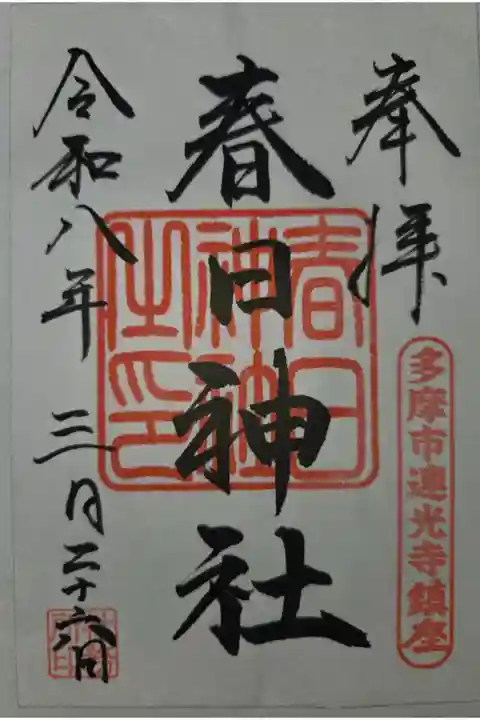 奉拝
多摩市連光寺鎮座
春日神社
春日
神社
之印
令和八年 三月二十六日
社務
所印